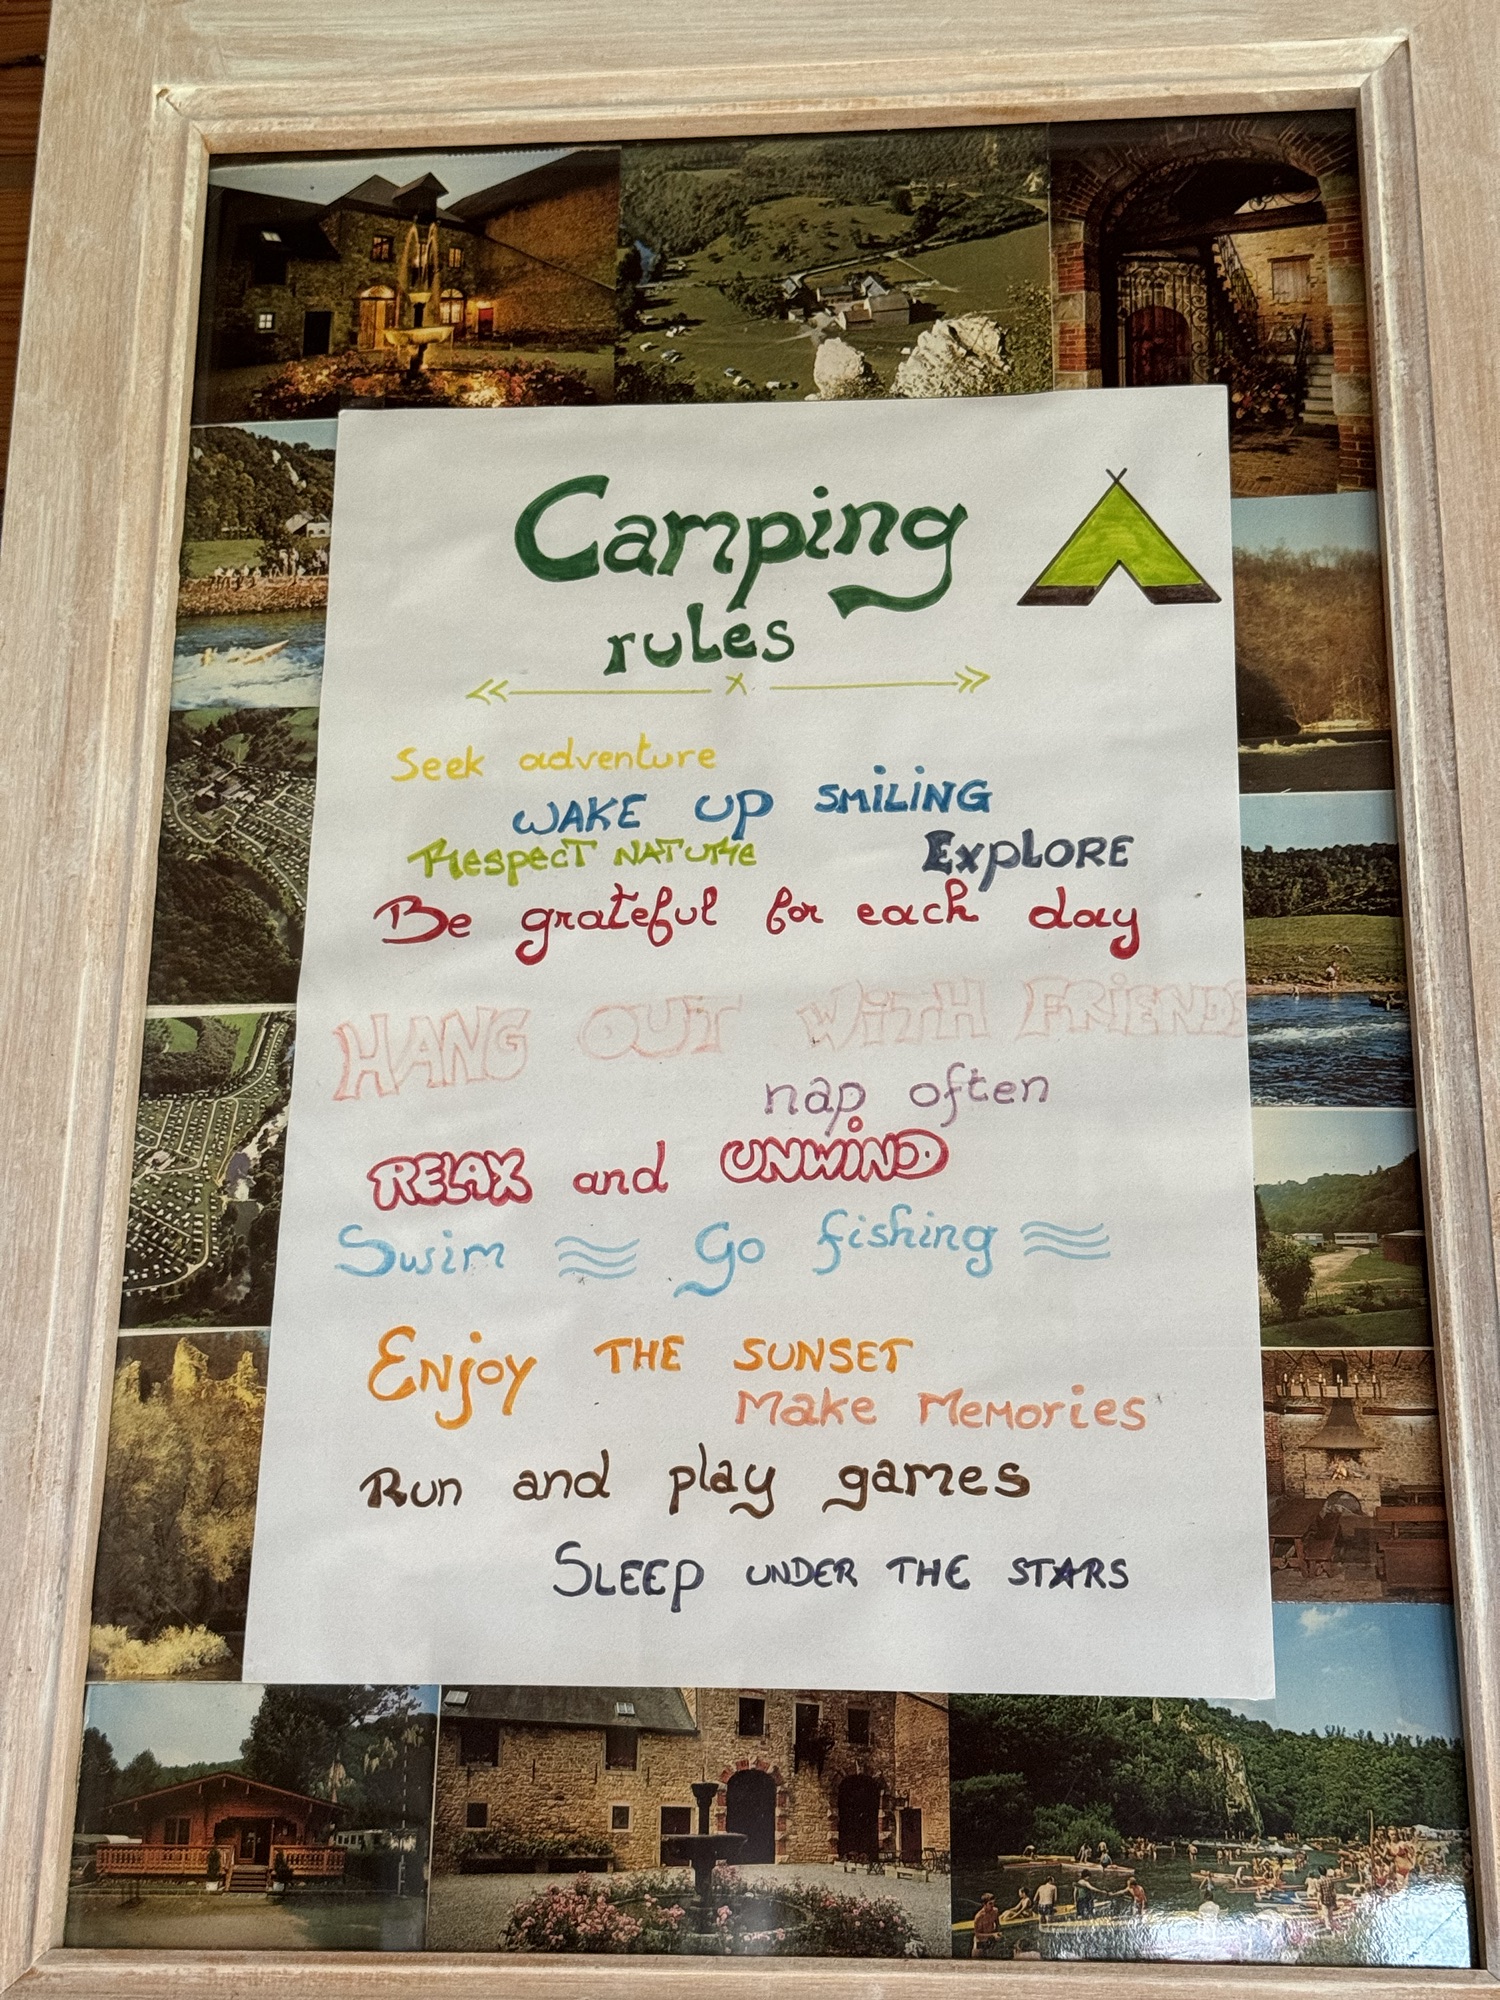 Camping
rules
Seek adventure
WAKE UP SMILING
Respect NATURE EXPLORE
Be grateful for each day
HANG OUT WITH FRIENDS
nap often
RELAX and UNWIND
Swim Go fishing
Enjoy THE SUNSET
Make Memories
Run and play games
SLEEP UNDER THE STARS